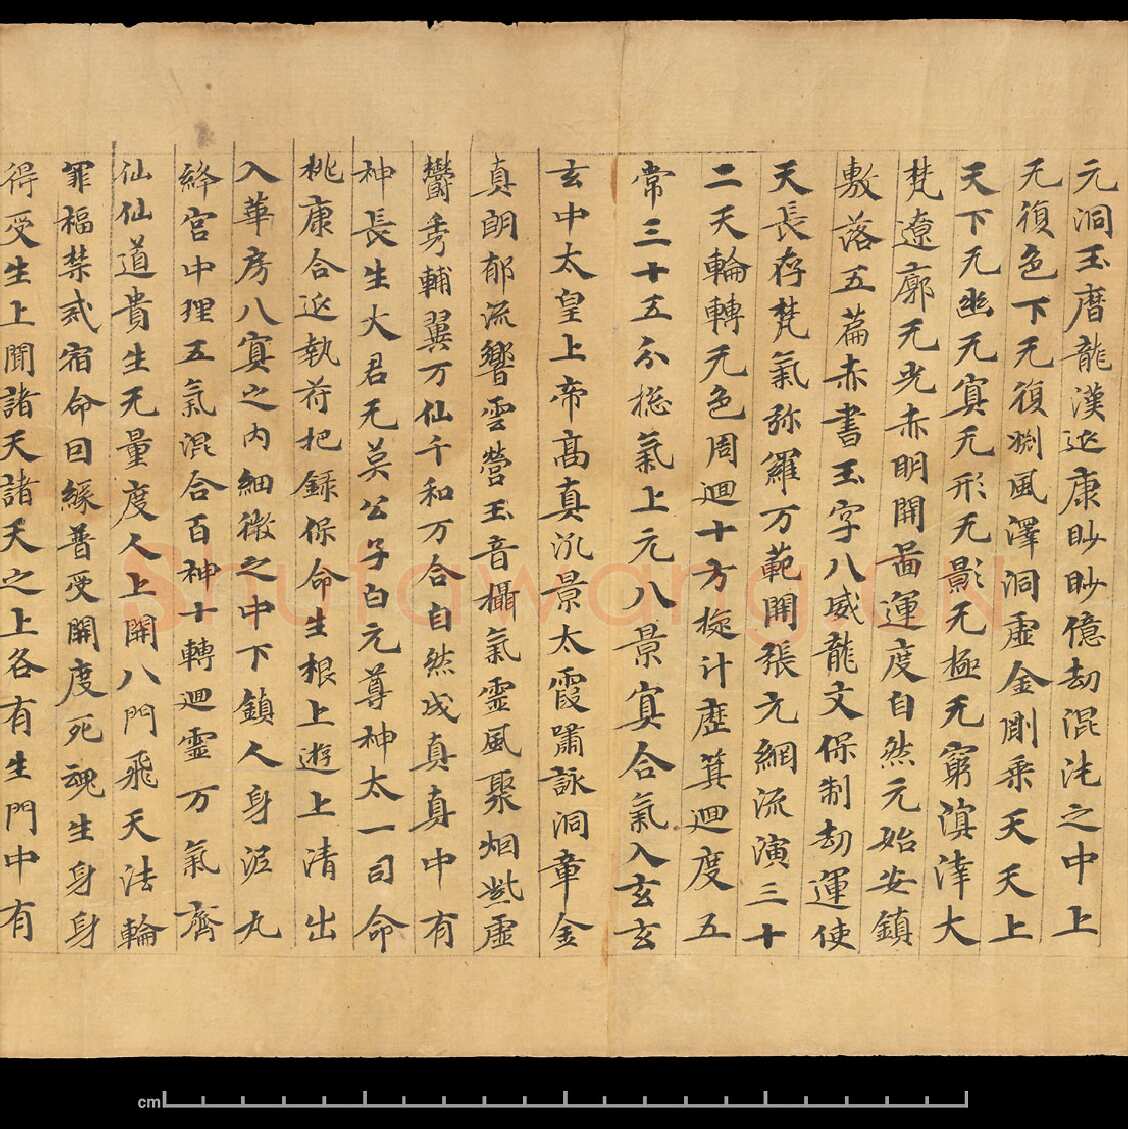 元洞玉曆龍漢延康眇眇億劫混沌之中上
无復色下无復渊風澤洞虛金剛乗天天上
天下无幽无冥无形无影无極无窮溟涬大
梵遼廓无光赤明開啚運度自然元始安鎮
敷落五篇赤書玉字八威龍文保制劫運使
天長存梵氣弥羅万範開張元綱流演三十
二天輪轉无色周迴十方旋計歷箕迴度五
常三十五分捴氣上元八景冥合氣入玄玄
玄中太皇上帝高真汎景太霞嘯詠洞章金
真朗郁流響雲營玉音攝氣靈風聚烟紫虛
鬱秀輔翼万仙千和万合自然成真真中有
神長生大君无英公子白元尊神太一司命
桃康合延執苻把錄保命生根上遊上清出
入華房八冥之内細微之中下鎮人身泥丸
絳宮中理五氣混合百神十轉迴靈万氣齊
仙仙道貴生无量度人上開八門飛天法輪
罪福禁戒宿命回緣普受開度死魂生身身
得受生上聞諸天諸天之上各有生門中有
Shufawang.CN
cm